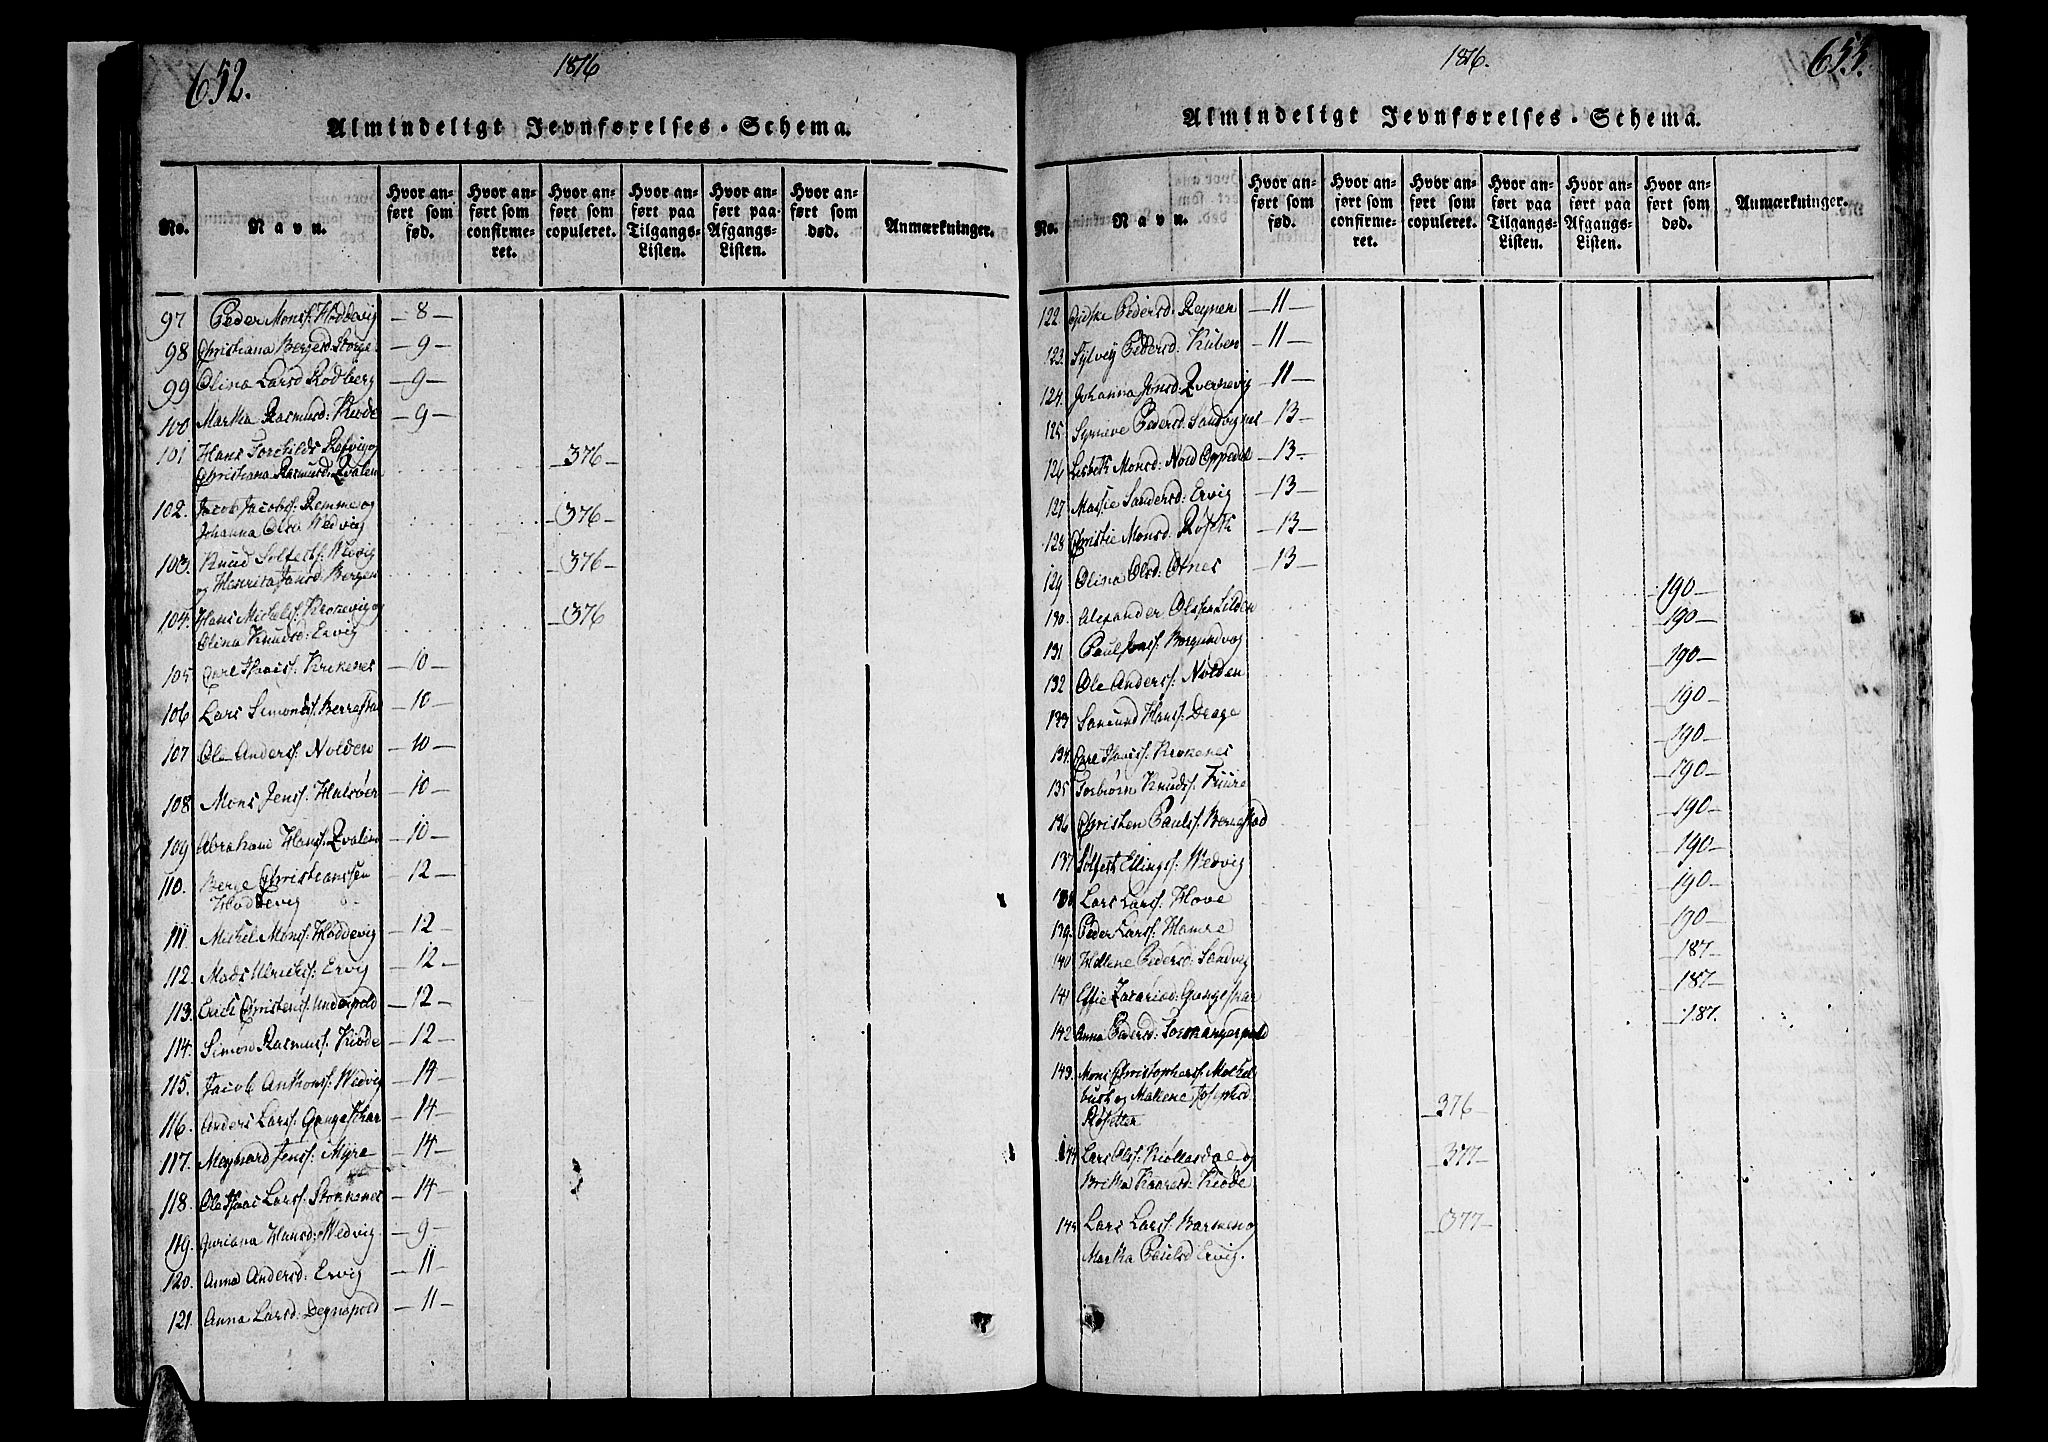 652.
1816
Almindeligt Jevnførelses-Schema.
No.
Navn.
Hvor anført som fød.
Hvor anført som confirmeret.
Hvor anført som copuleret.
Hvor anført paa Tilgangs-Listen.
Hvor anført paa Afgangs-Listen.
Hvor anført som død.
Anmærkninger.
97 Peder Monss: Hoddevig —8—
98 Christiana Bergesd: —9—
99 Olina Larsd Rodberg —9—
100 Martha Rasmusd: Kiøde —9—
101 Hans Torchilds Refvig og
Christiana Rasmusd: Qvalen —376—
102. Jacob Jacobs: Remme og
Johanna Olsd Wedvig —376—
103. Knud Solfests: Wedvig
og Henrica Jansd Bergen —376—
104. Hans Michels: Krokevig og
Olina Knudsd: Ervig —376
105. Carl Isacs: Krikenes —10—
106 Lars Simonds: Berrestad —10—
107 Ole Anders: Nolden —10—
108 Mons Jenss: Halsør —10—
109 Abraham Hanss: Qvalen —10—
110. Berge Christianssen
Hoddevig —12—
111. Michel Monss: Hoddevig —12—
112. Mads Ulrichs: Ervig —12—
113. Erich Christens: —12—
114. Simon Rasmuss: Kiøde —12—
115. Jacob Anthons: Wedvig —14—
116. Anders Larss: Gangeskar —14—
117. Meynard Jenss: Myre —14—
118. Ole Isaac Larss: Stokkenes —14—
119. Juriana Hansd: Wedvig —9—
120. Anna Andersd: Ervig —11—
121. Anna Larsd: Degnepold —11—
1816.
653.
Almindeligt Jevnførelses-Schema.
No.
Navn.
Hvor anført som fød.
Hvor anført som confirmeret.
Hvor anført som copuleret.
Hvor anført paa Tilgangs-Listen.
Hvor anført paa Afgangs-Listen.
Hvor anført som død.
Anmærkninger.
122. Gidske Pedersd: —11—
123. Sylvey Pedersd: Kuben —11—
124. Johanna Jonsd: —11—
125. Synneve Pedersd: Sandvignes —13—
126 Lisbeth Monsd: Nord Oppedal —13—
127. Massie Sandersd: Ervig —13—
128 Christie Monsd: —13—
129 Olina Olsd: Otnes —13—
130. Alexander Olssen Lilden —190—
131 Paul Jons: Borgundvog —190—
132 Ole Anderss: Nolden —190—
133 Samund Hanss: Drage —190—
134. Carl Isacs: Krokenes —190—
135 Torbiørn Knuds: Fuure —190—
136 Christen Pauls: Berrestad —190—
137 Solfest Ellings: Wedvig —190—
138 Lars Larss: Hove —190—
139. Peder Larss: Hamre —190—
140 Hellene Pedersd: Sandvig —187—
141 Effie Zacarisd: Gangeskar —187—
142 Anna Pedersd: Tormangerpold —187.
143. Mons Christophers:
og Malene Josephsd
Røsetter —376—
144 Lars Olss: og
Britha Kaaresd: Kiøde —377—
145 Lars Larss: Barmen og
Martha Paulsd Ervig. —377—